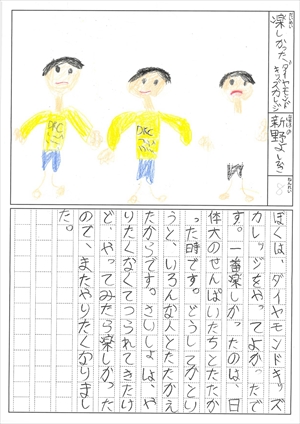 だいめい
楽しかった、ダイヤモンド
キッズカレッジ
なまえ
新野
ねんれい
8
DKC
DKC
ぼくは、ダイヤモンドキッズ
カレッジをやってよかったで
す。一番楽しかったのは、日
体大のせんぱいたちとたたか
った時です。どうしてかとい
うと、いろんな人とたたかえ
たからです。さいしょは、や
りたくなくてつられてきたけ
ど、やってみたら楽しかった
ので、またやりたくなりまし
た。